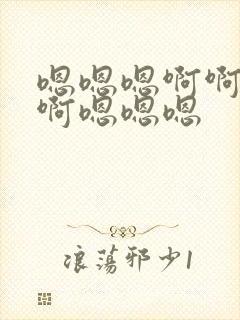 嗯嗯嗯啊啊
啊嗯嗯嗯
浪荡邪少1